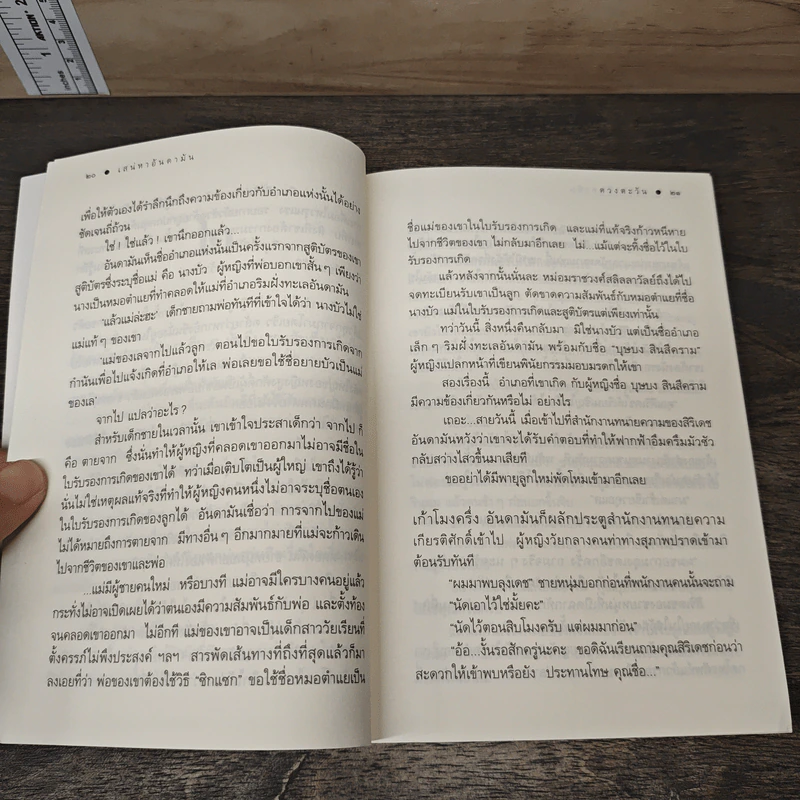 ๒๐ ● เสน่หาอันดามัน
เพื่อให้ตัวเองได้รำลึกนึกถึงความข้องเกี่ยวกับอำเภอแห่งนั้นได้อย่าง
ชัดเจนถี่ถ้วน
ใช่ ! ใช่แล้ว ! เขานึกออกแล้ว...
อันดามันเห็นชื่ออำเภอแห่งนั้นเป็นครั้งแรกจากสูติบัตรของเขา
สูติบัตรซึ่งระบุชื่อแม่ คือ นางบัว ผู้หญิงที่พ่อบอกเขาสั้น ๆ เพียงว่า
นางเป็นหมอตำแยที่ทำคลอดให้แม่ที่อำเภอริมฝั่งทะเลอันดามัน
'แล้วแม่ล่ะฮะ' เด็กชายถามพ่อทันทีที่เข้าใจได้ว่า นางบัวไม่ใช่
แม่แท้ ๆ ของเขา
'แม่ของเลจากไปแล้วลูก ตอนไปขอใบรับรองการเกิดจาก
กำนันเพื่อไปแจ้งเกิดที่อำเภอให้เล พ่อเลยขอใช้ชื่อยายบัวเป็นแม่
ของเล'
จากไป แปลว่าอะไร ?
สำหรับเด็กชายในเวลานั้น เขาเข้าใจประสาเด็กว่า จากไป ก็
คือ ตายจาก ซึ่งนั่นทำให้ผู้หญิงที่คลอดเขาออกมาไม่อาจมีชื่อใน
ใบรับรองการเกิดของเขาได้ ทว่าเมื่อเติบโตเป็นผู้ใหญ่ เขาถึงได้รู้ว่า
นั่นไม่ใช่เหตุผลแท้จริงที่ทำให้ผู้หญิงคนหนึ่งไม่อาจระบุชื่อตนเอง
ในใบรับรองการเกิดของลูกได้ อันดามันเชื่อว่า การจากไปของแม่
ไม่ได้หมายถึงการตายจาก มีทางอื่น ๆ อีกมากมายที่แม่จะก้าวเดิน
ไปจากชีวิตของเขาและพ่อ
...แม่มีผู้ชายคนใหม่ หรือบางที แม่อาจมีใครบางคนอยู่แล้ว
กระทั่งไม่อาจเปิดเผยได้ว่าตนเองมีความสัมพันธ์กับพ่อ และตั้งท้อง
จนคลอดเขาออกมา ไม่อีกที แม่ของเขาอาจเป็นเด็กสาววัยเรียนที่
ตั้งครรภ์ไม่พึงประสงค์ ฯลฯ สารพัดเส้นทางที่ถึงที่สุดแล้วก็มา
ลงเอยที่ว่า พ่อของเขาต้องใช้วิธี "ซิกแซก" ขอใช้ชื่อหมอตำแยเป็น
ดวงตะวัน ● ๒๑
ชื่อแม่ของเขาในใบรับรองการเกิด และแม่ที่แท้จริงก้าวหนีหาย
ไปจากชีวิตของเขา ไม่กลับมาอีกเลย ไม่...แม้แต่จะทิ้งชื่อไว้ในใบ
รับรองการเกิด
แล้วหลังจากนั้นนั่นละ หม่อมราชวงศ์สลิลลาวัลย์ถึงได้ไป
จดทะเบียนรับเขาเป็นลูก ตัดขาดความสัมพันธ์กับหมอตำแยที่ชื่อ
นางบัว แม่ในใบรับรองการเกิดและสูติบัตรแต่เพียงเท่านั้น
ทว่าวันนี้ สิ่งหนึ่งคืนกลับมา มิใช่นางบัว แต่เป็นชื่ออำเภอ
เล็ก ๆ ริมฝั่งทะเลอันดามัน พร้อมกับชื่อ "บุษบง สินสีคราม"
ผู้หญิงแปลกหน้าที่เขียนพินัยกรรมมอบมรดกให้เขา
สองเรื่องนี้ อำเภอที่เขาเกิด กับผู้หญิงชื่อ บุษบง สินสีคราม
มีความข้องเกี่ยวกันหรือไม่ อย่างไร
เถอะ...สายวันนี้ เมื่อเข้าไปที่สำนักงานทนายความของสิริเดช
อันดามันหวังว่าเขาจะได้รับคำตอบที่ทำให้ฟากฟ้าอึมครึมมัวซัว
กลับสว่างไสวขึ้นมาเสียที
ขออย่าได้มีพายุลูกใหม่พัดโหมเข้ามาอีกเลย
เก้าโมงครึ่ง อันดามันก็ผลักประตูสำนักงานทนายความ
เกียรติศักดิ์เข้าไป ผู้หญิงวัยกลางคนท่าทางสุภาพปราดเข้ามา
ต้อนรับทันที
"ผมมาพบลุงเดช" ชายหนุ่มบอกก่อนที่พนักงานคนนั้นจะถาม
"นัดเอาไว้ใช่มั้ยคะ"
"นัดไว้ตอนสิบโมงครับ แต่ผมมาก่อน"
"อ้อ...งั้นรอสักครู่นะคะ ขอดิฉันเรียนถามคุณสิริเดชก่อนว่า
สะดวกให้เข้าพบหรือยัง ประทานโทษ คุณชื่อ..."